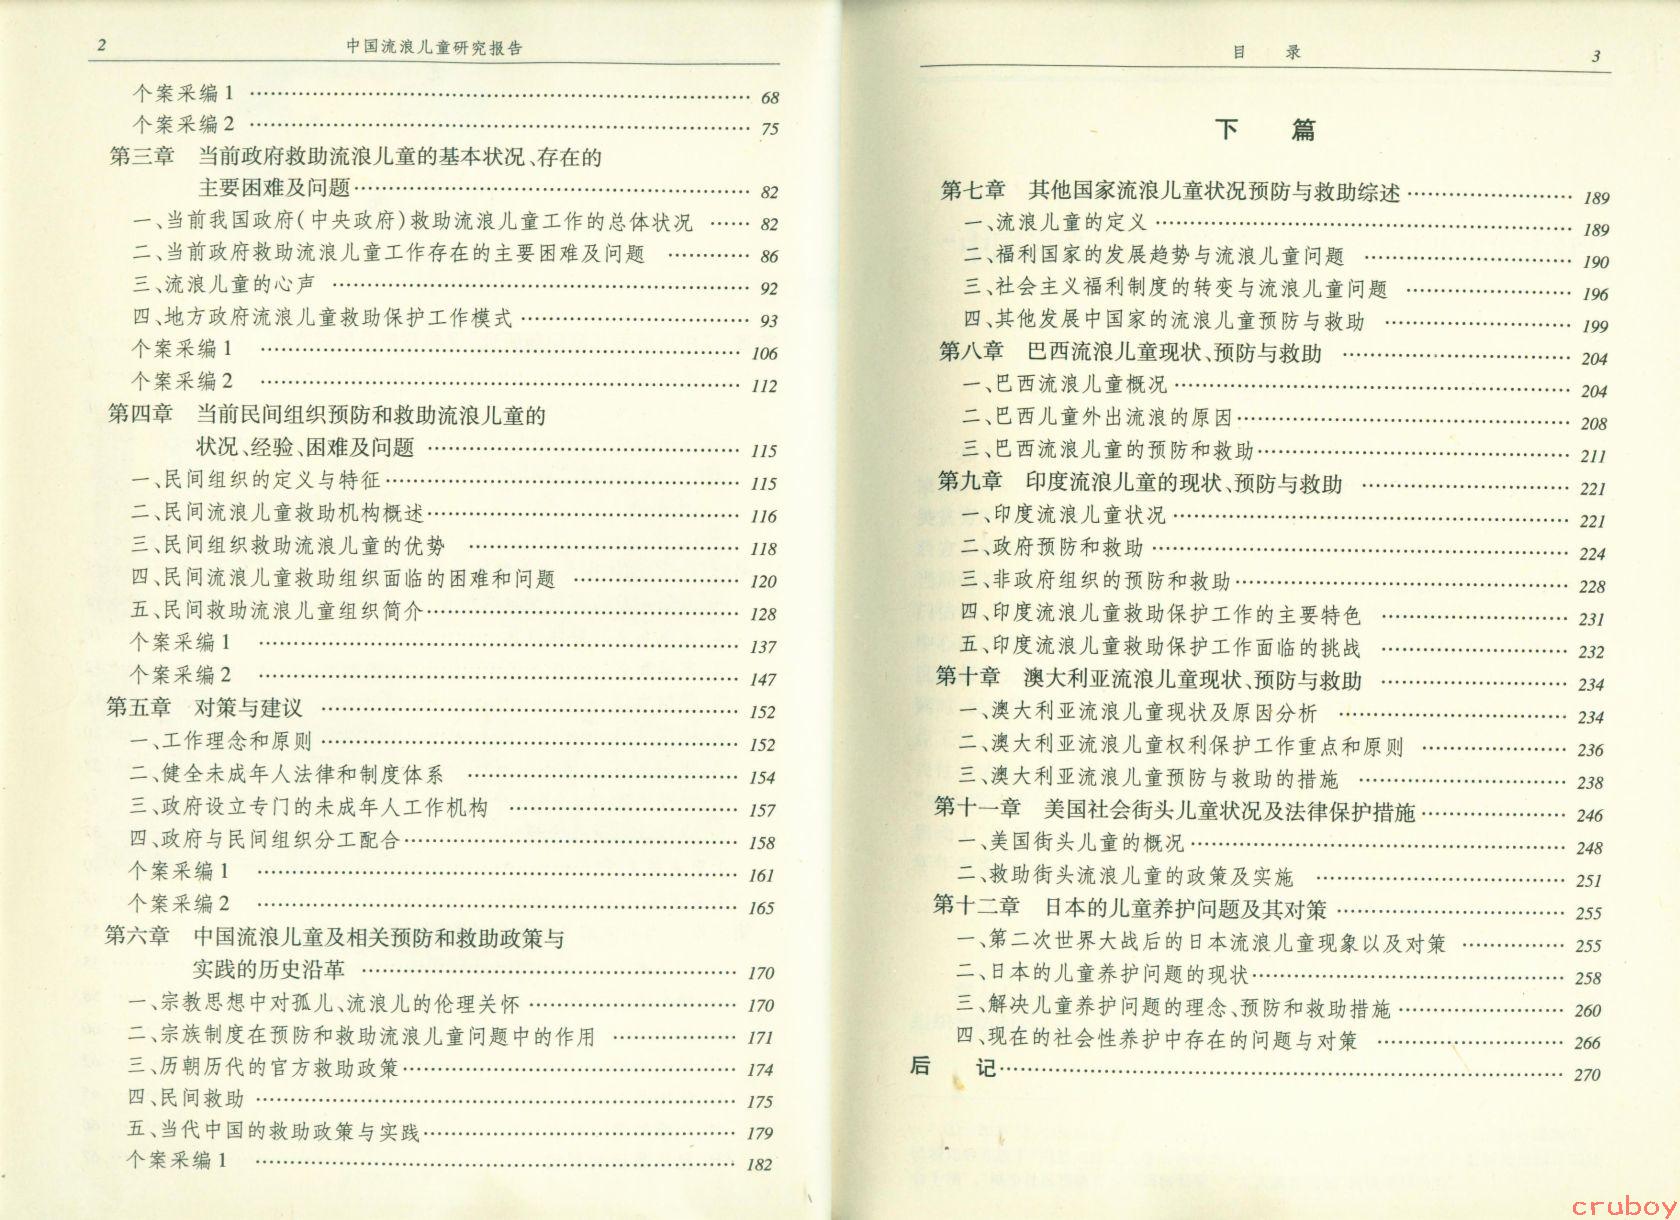 2 中国流浪儿童研究报告
个案采编1 …… 68
个案采编2 …… 75
第三章 当前政府救助流浪儿童的基本状况、存在的
主要困难及问题 …… 82
一、当前我国政府(中央政府)救助流浪儿童工作的总体状况 …… 82
二、当前政府救助流浪儿童工作存在的主要困难及问题 …… 86
三、流浪儿童的心声 …… 92
四、地方政府流浪儿童救助保护工作模式 …… 93
个案采编1 …… 106
个案采编2 …… 112
第四章 当前民间组织预防和救助流浪儿童的
状况、经验、困难及问题 …… 115
一、民间组织的定义与特征 …… 115
二、民间流浪儿童救助机构概述 …… 116
三、民间组织救助流浪儿童的优势 …… 118
四、民间流浪儿童救助组织面临的困难和问题 …… 120
五、民间救助流浪儿童组织简介 …… 128
个案采编1 …… 137
个案采编2 …… 147
第五章 对策与建议 …… 152
一、工作理念和原则 …… 152
二、健全未成年人法律和制度体系 …… 154
三、政府设立专门的未成年人工作机构 …… 157
四、政府与民间组织分工配合 …… 158
个案采编1 …… 161
个案采编2 …… 165
第六章 中国流浪儿童及相关预防和救助政策与
实践的历史沿革 …… 170
一、宗教思想中对孤儿、流浪儿的伦理关怀 …… 170
二、宗族制度在预防和救助流浪儿童问题中的作用 …… 171
三、历朝历代的官方救助政策 …… 174
四、民间救助 …… 175
五、当代中国的救助政策与实践 …… 179
个案采编1 …… 182
目 录 3
下 篇
第七章 其他国家流浪儿童状况预防与救助综述 …… 189
一、流浪儿童的定义 …… 189
二、福利国家的发展趋势与流浪儿童问题 …… 190
三、社会主义福利制度的转变与流浪儿童问题 …… 196
四、其他发展中国家的流浪儿童预防与救助 …… 199
第八章 巴西流浪儿童现状、预防与救助 …… 204
一、巴西流浪儿童概况 …… 204
二、巴西儿童外出流浪的原因 …… 208
三、巴西流浪儿童的预防和救助 …… 211
第九章 印度流浪儿童的现状、预防与救助 …… 221
一、印度流浪儿童状况 …… 221
二、政府预防和救助 …… 224
三、非政府组织的预防和救助 …… 228
四、印度流浪儿童救助保护工作的主要特色 …… 231
五、印度流浪儿童救助保护工作面临的挑战 …… 232
第十章 澳大利亚流浪儿童现状、预防与救助 …… 234
一、澳大利亚流浪儿童现状及原因分析 …… 234
二、澳大利亚流浪儿童权利保护工作重点和原则 …… 236
三、澳大利亚流浪儿童预防与救助的措施 …… 238
第十一章 美国社会街头儿童状况及法律保护措施 …… 246
一、美国街头儿童的概况 …… 248
二、救助街头流浪儿童的政策及实施 …… 251
第十二章 日本的儿童养护问题及其对策 …… 255
一、第二次世界大战后的日本流浪儿童现象以及对策 …… 255
二、日本的儿童养护问题的现状 …… 258
三、解决儿童养护问题的理念、预防和救助措施 …… 260
四、现在的社会性养护中存在的问题与对策 …… 266
后 记 …… 270
cruboy